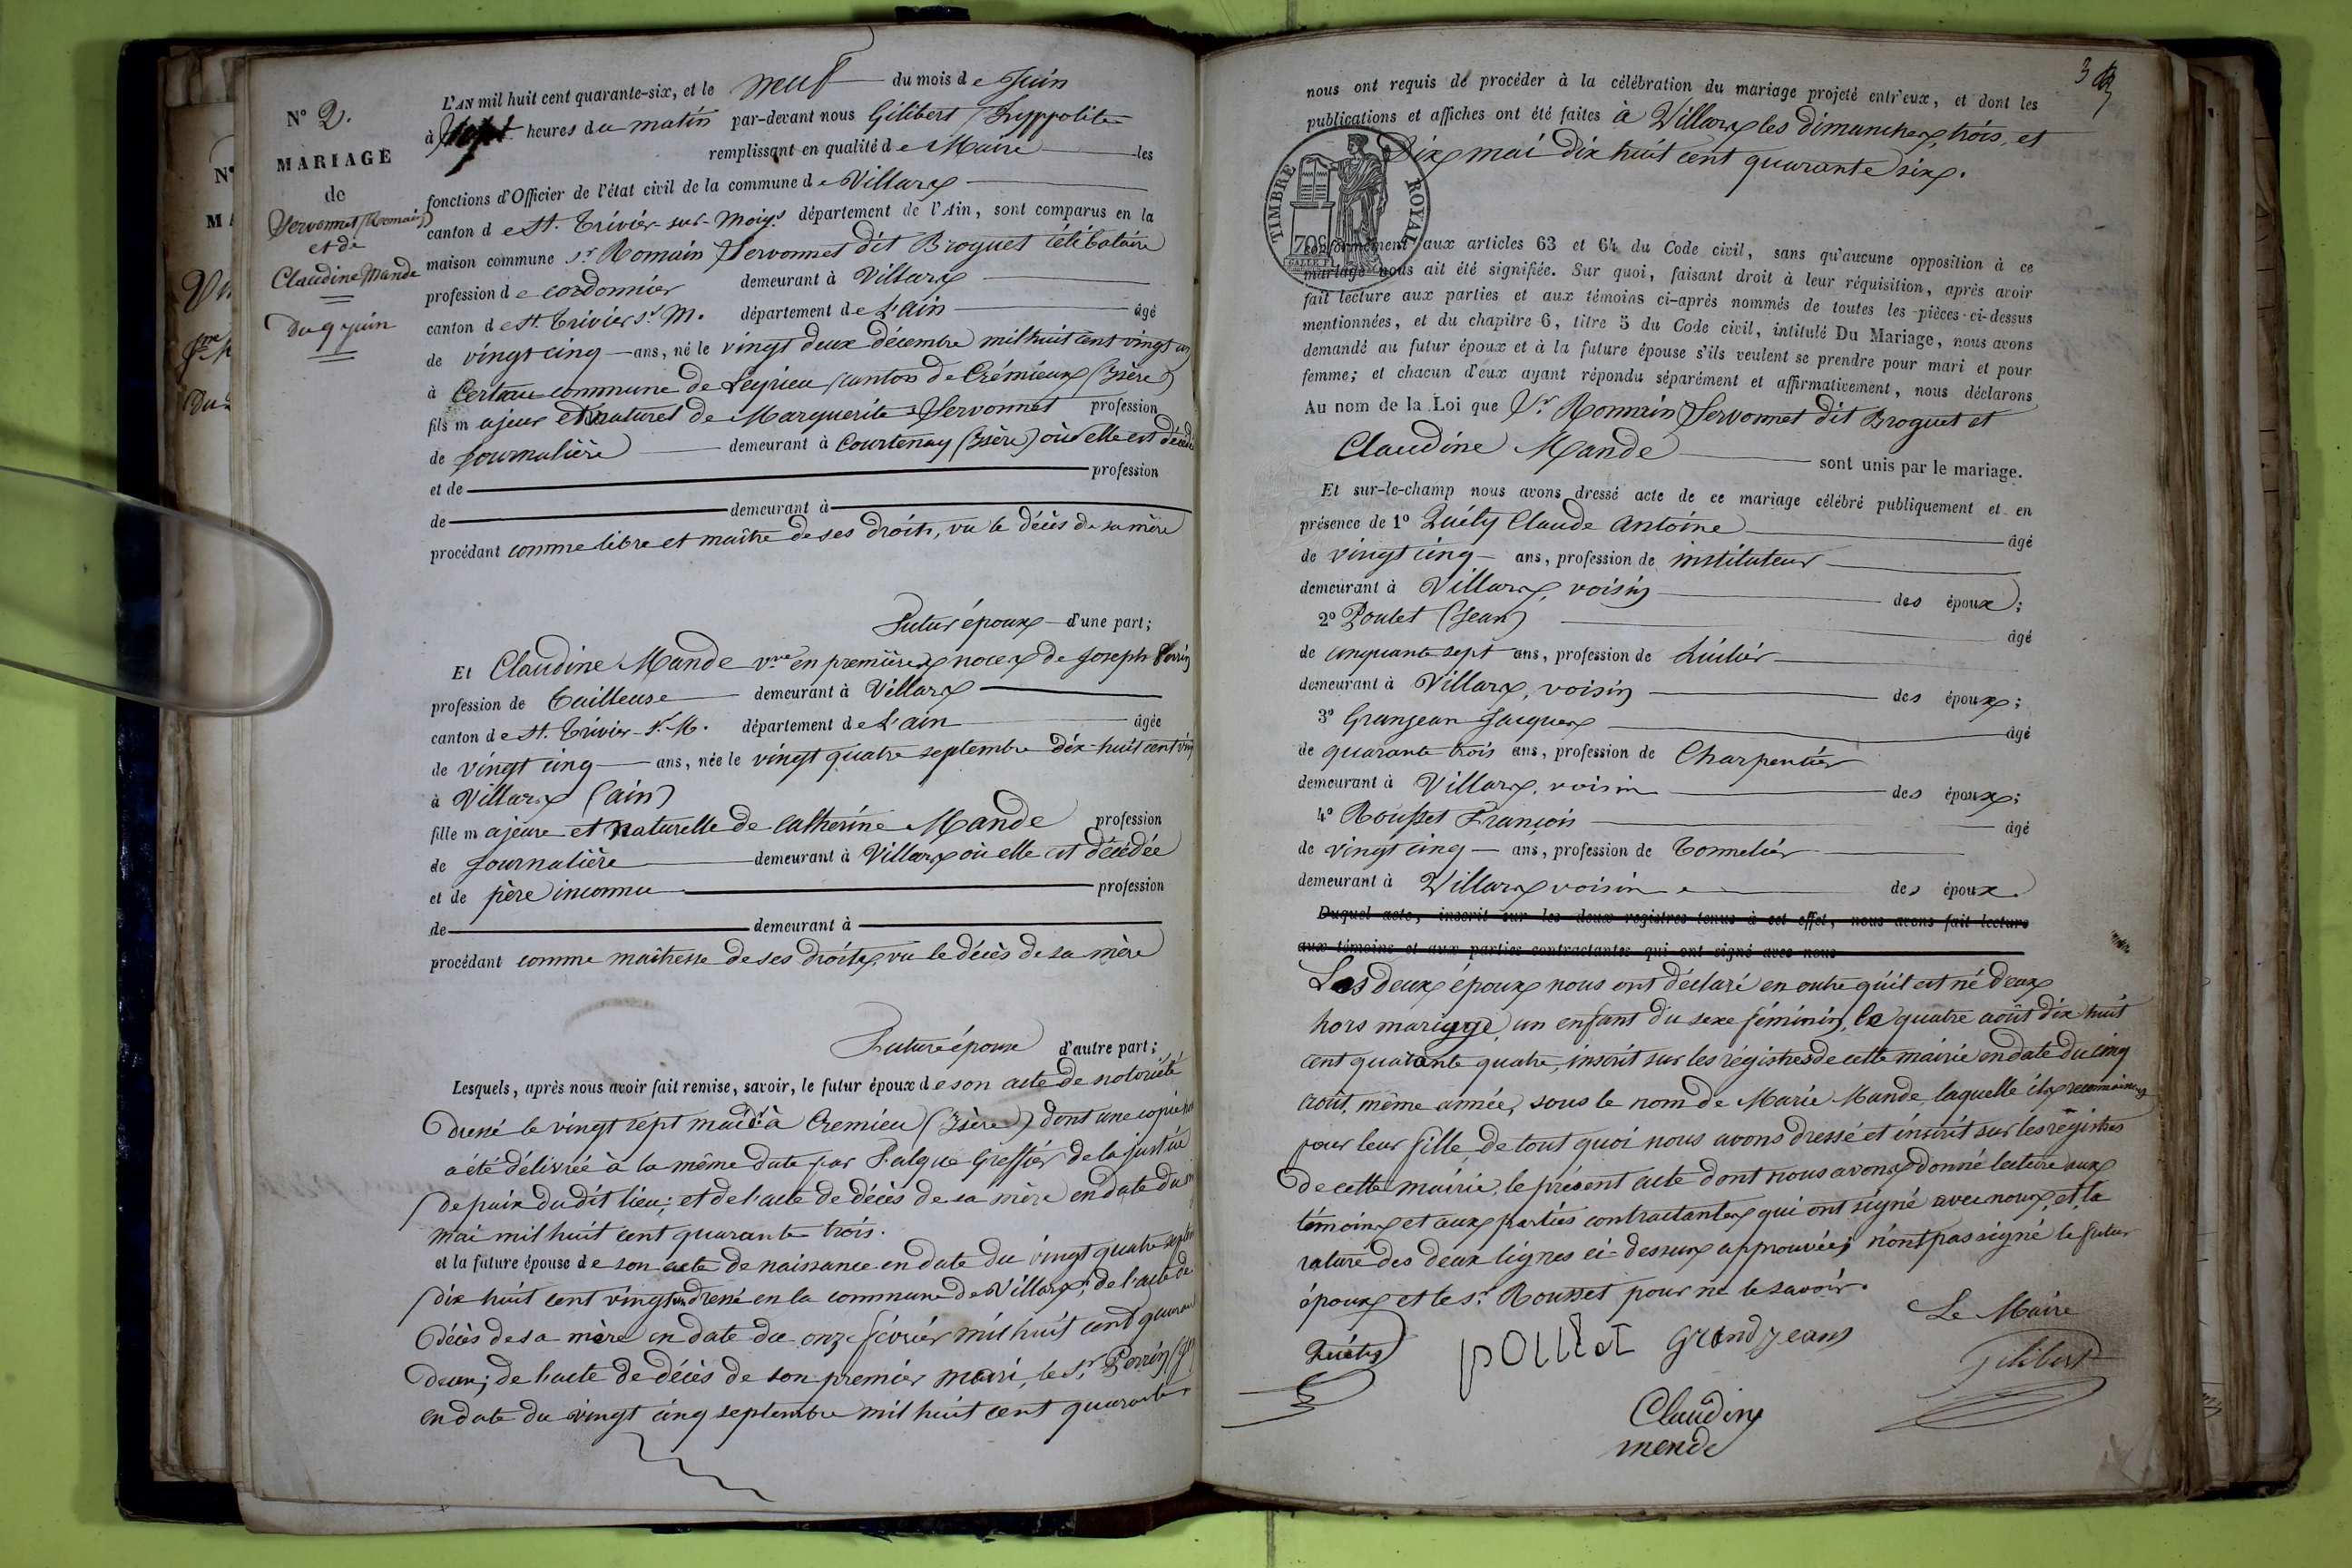 N° 2.
MARIAGE
de
Servonnet (Romain)
et de
Claudine Mande
Du 9 juin
L'AN mil huit cent quarante-six, et le neuf du mois de Juin
à sept heures du matin par-devant nous Gilibert hyppolite
remplissant en qualité de Maire les
fonctions d'Officier de l'état civil de la commune de Villars
canton de St. Trivier-sur-Moigs département de l'Ain, sont comparus en la
maison commune sr Romain Servonnet dit Broguet célibataire
profession de cordonnier demeurant à Villars
canton de St. Trivier sr M. département de L'ain âgé
de vingt cinq ans, né le vingt deux décembre mil huit cent vingt
à commune de Leyrieu canton de Crémieux (Isère)
fils majeur et naturel de Marguerite Servonnet profession
de Journalière demeurant à Courtenay (Isère) où elle est
et de profession
de demeurant à
procédant comme libre et maître de ses droits, vu le décès de sa mère
Futur époux d'une part;
Et Claudine Mande vve en premières noces de Joseph Perrin
profession de Tailleuse demeurant à Villars
canton de St. Trivier-s.r M. département de L'ain âgée
de vingt cinq ans, née le vingt quatre septembre dix-huit cent
à Villars (ain)
fille majeure et naturelle de Catherine Mande profession
de Journalière demeurant à Villars où elle est décédée
et de père inconnu profession
de demeurant à
procédant comme maîtresse de ses droits, vu le décès de sa mère
Future épouse d'autre part;
Lesquels, après nous avoir fait remise, savoir, le futur époux de son acte de notoriété
Dressé le vingt sept mai à Cremieu (Isère) dont une copie
a été délivrée à la même date par Falque Greffier de la justice
de paix dudit lieu; et de l'acte de décès de sa mère en date du
mai mil huit cent quarante trois.
et la future épouse de son acte de naissance en date du vingt quatre
dix huit cent vingt un dressé en la commune de Villars; de l'acte de
Décès de sa mère en date du onze février mil huit cent
deux; de l'acte de décès de son premier mari, le sr Perrin
en date du vingt cinq septembre mil huit cent quarante
3
nous ont requis de procéder à la célébration du mariage projeté entr'eux, et dont les
publications et affiches ont été faites à Villars les dimanches, trois, et
Dix mai dix huit cent quarante six.
TIMBRE ROYAL
70c
conformément aux articles 63 et 64 du Code civil, sans qu'aucune opposition à ce
mariage nous ait été signifiée. Sur quoi, faisant droit à leur réquisition, après avoir
fait lecture aux parties et aux témoins ci-après nommés de toutes les pièces ci-dessus
mentionnées, et du chapitre 6, titre 5 du Code civil, intitulé Du Mariage, nous avons
demandé au futur époux et à la future épouse s'ils veulent se prendre pour mari et pour
femme; et chacun d'eux ayant répondu séparément et affirmativement, nous déclarons
Au nom de la Loi que Sr Romain Servonnet dit Broguet et
Claudine Mande sont unis par le mariage.
Et sur-le-champ nous avons dressé acte de ce mariage célébré publiquement et en
présence de 1° Quéty Claude Antoine âgé
de vingt cinq ans, profession de instituteur
demeurant à Villars, voisin des époux;
2° Poulet (Jean) âgé
de cinquante sept ans, profession de huilier
demeurant à Villars, voisin des époux;
3° Granjean Jacques âgé
de quarante trois ans, profession de Charpentier
demeurant à Villars, voisin des époux;
4° Rousset François âgé
de vingt cinq ans, profession de Tonnelier
demeurant à Villars voisin des époux.
Duquel acte, inscrit sur les deux registres tenus à cet effet, nous avons fait lecture
aux témoins et aux parties contractantes qui ont signé avec nous
Les deux époux nous ont déclaré en outre qu'il est né d'eux
hors mariage, un enfant du sexe féminin, le quatre août dix huit
cent quarante quatre, inscrit sur les régistres de cette mairie en date du cinq
août, même année, sous le nom de Marie Mande, laquelle ils
pour leur fille, de tout quoi nous avons dressé et inscrit sur les régistres
de cette mairie, le présent acte dont nous avons donné lecture aux
témoins et aux parties contractantes qui ont signé avec nous, et la
rature des deux lignes ci-dessus approuvée; n'ont pas signé le futur
époux et le sr. Rousset pour ne le savoir.
Le Maire
Quéty
poulet
grandjean
Gilibert
Claudine
mende